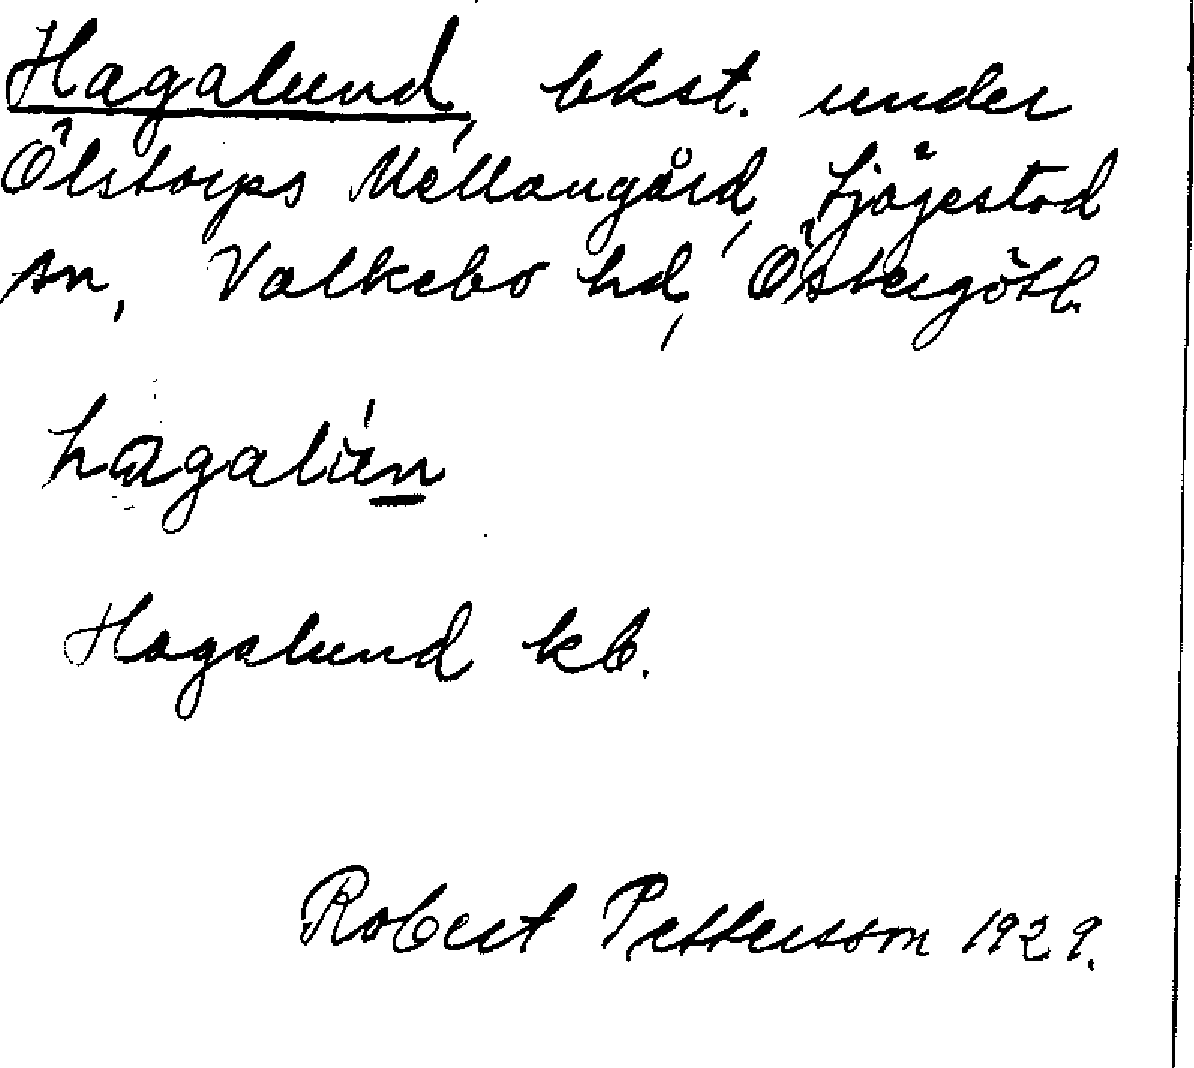 Hagalund, bkst. under
Ölstorps Mellangård, Ljögestad
sn, Valkebo hd, Östergötl.
hagalún
Hagalund kb.
Robert Pettersson 1929.